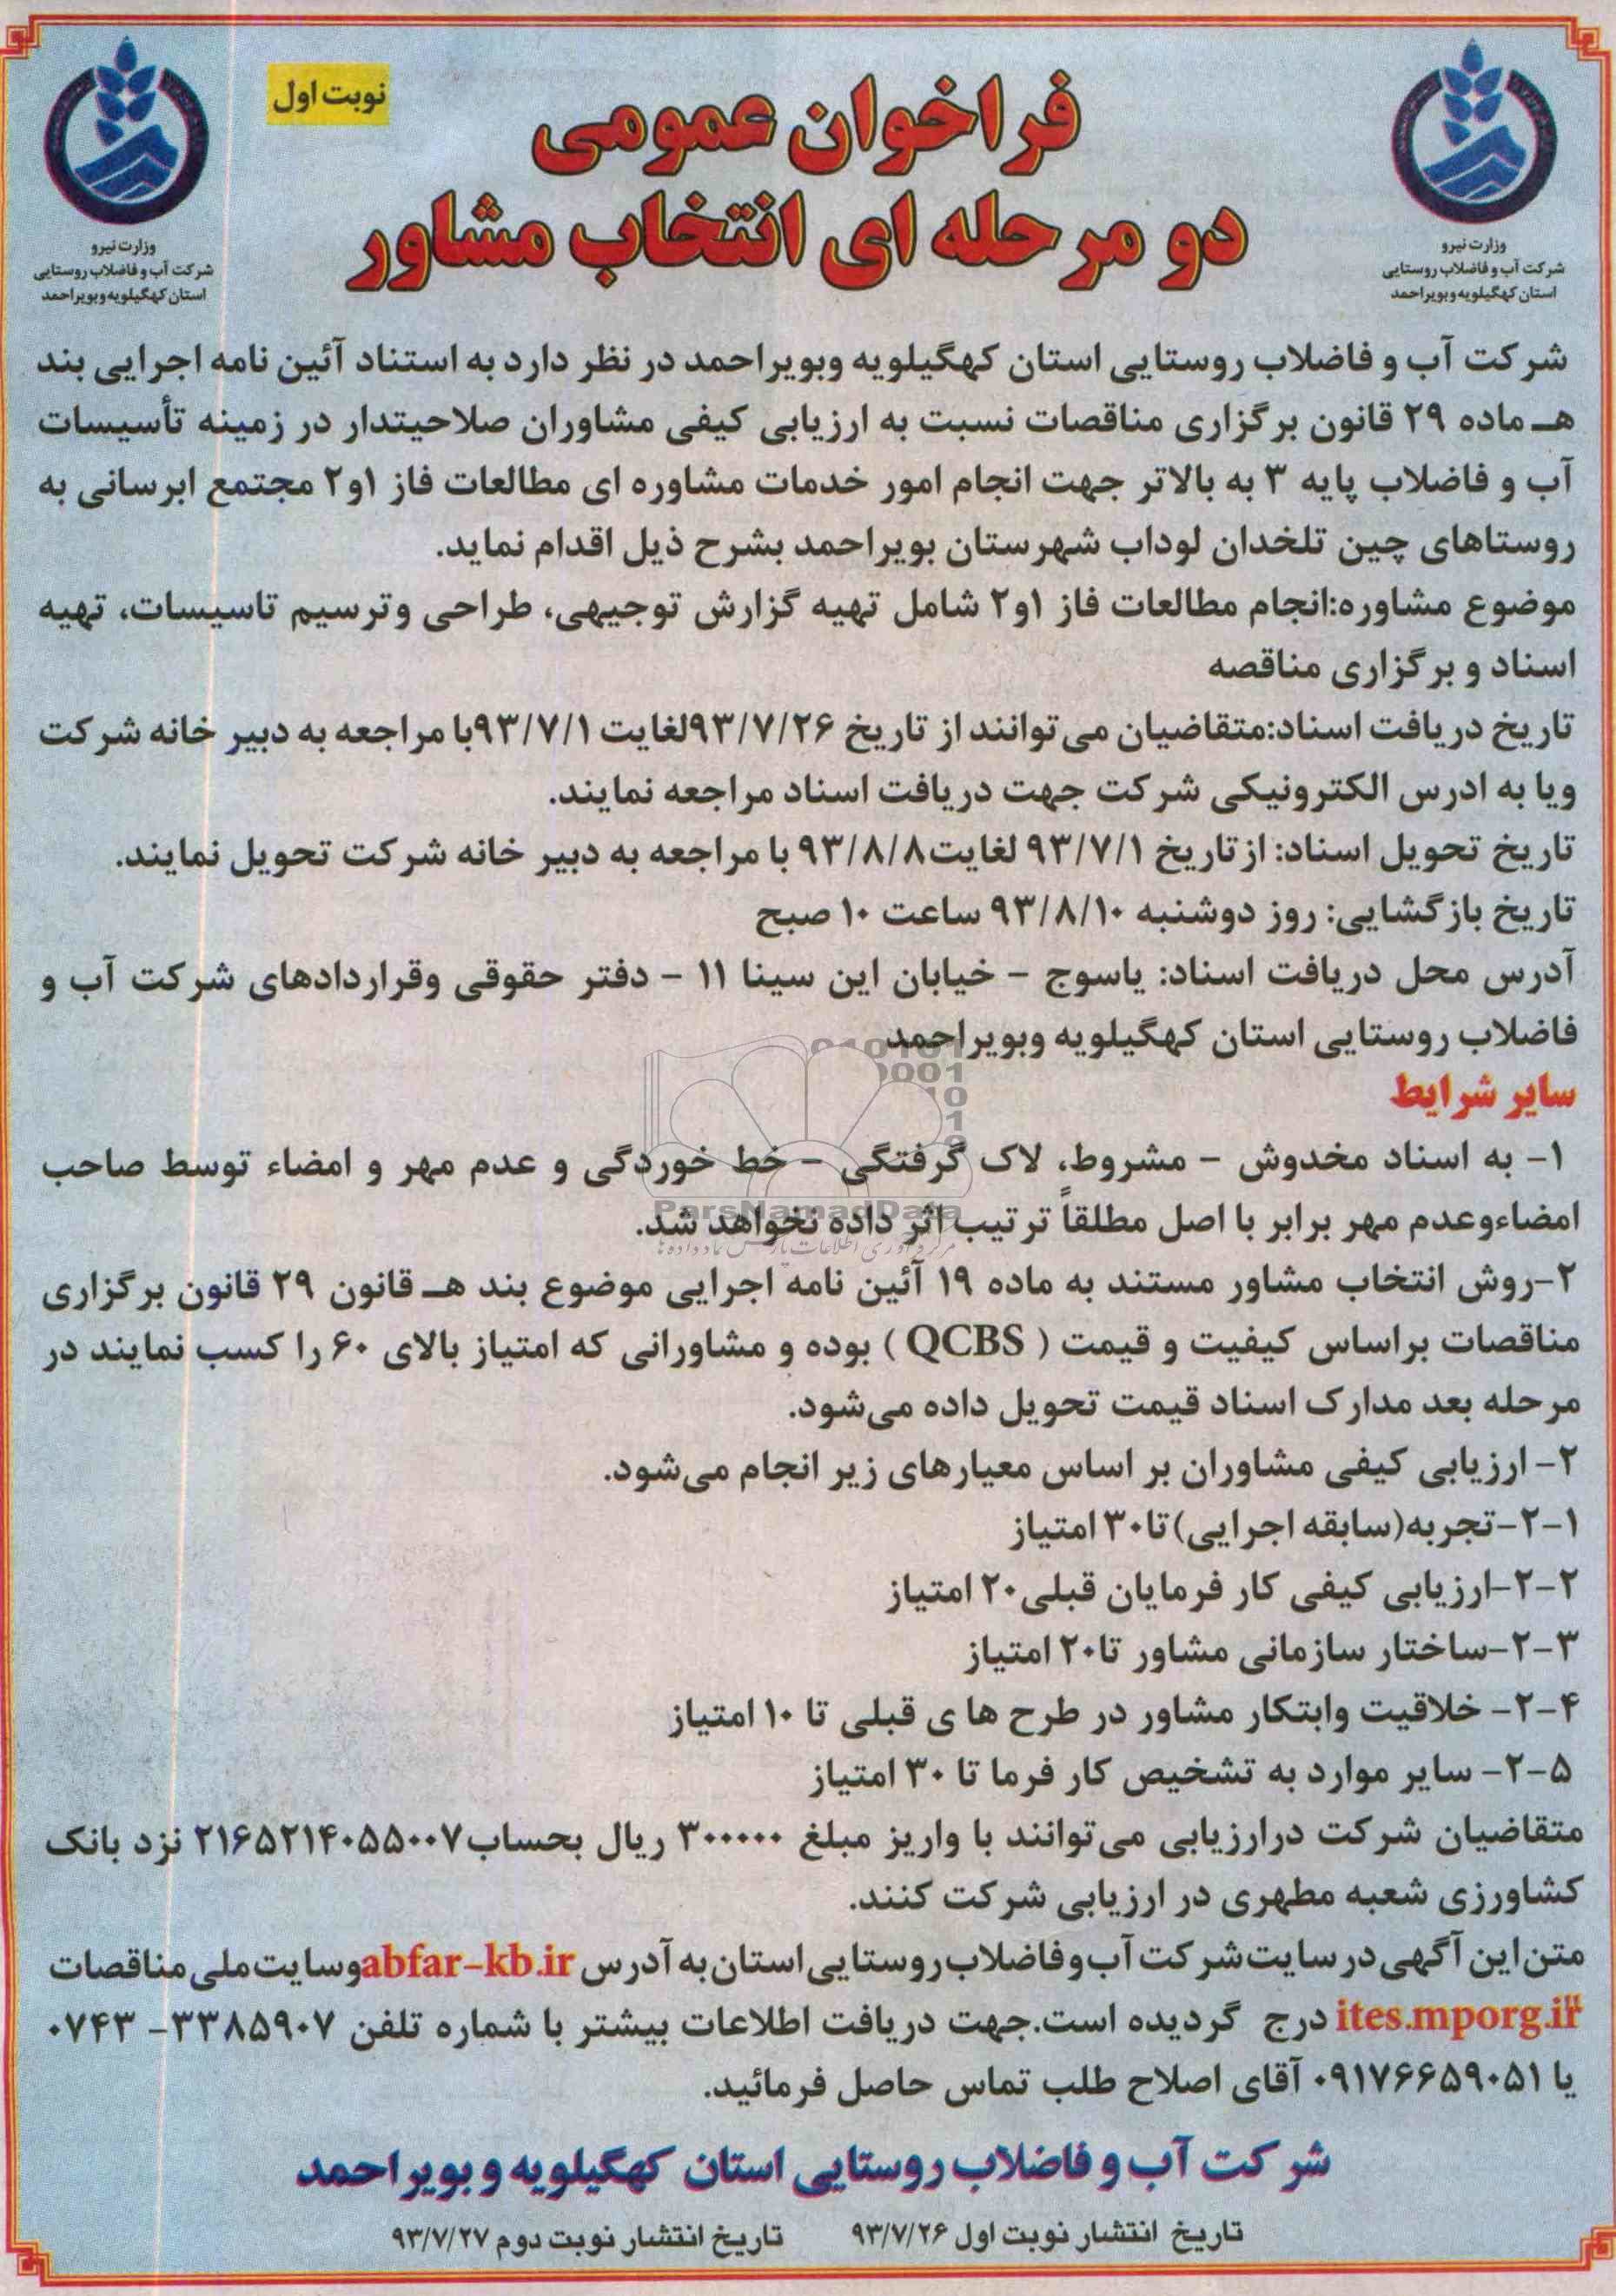 نوبت اول
فراخوان عمومی
دو مرحله ای انتخاب مشاور
وزارت نیرو
شرکت آب و فاضلاب روستایی
استان کهگیلویه و بویراحمد
وزارت نیرو
شرکت آب و فاضلاب روستایی
استان کهگیلویه و بویراحمد
شرکت آب و فاضلاب روستایی استان کهگیلویه وبویراحمد در نظر دارد به استناد آئین نامه اجرایی بند
هـ ماده ۲۹ قانون برگزاری مناقصات نسبت به ارزیابی کیفی مشاوران صلاحیتدار در زمینه تأسیسات
آب و فاضلاب پایه ۳ به بالاتر جهت انجام امور خدمات مشاوره ای مطالعات فاز ۱و۲ مجتمع ابرسانی به
روستاهای چین تلخدان لوداب شهرستان بویراحمد بشرح ذیل اقدام نماید.
موضوع مشاوره:انجام مطالعات فاز ۱و۲ شامل تهیه گزارش توجیهی، طراحی وترسیم تاسیسات، تهیه
اسناد و برگزاری مناقصه
تاریخ دریافت اسناد:متقاضیان می توانند از تاریخ ۹۳/۷/۲۶لغایت ۹۳/۷/۱با مراجعه به دبیر خانه شرکت
ویا به ادرس الکترونیکی شرکت جهت دریافت اسناد مراجعه نمایند.
تاریخ تحویل اسناد: ازتاریخ ۹۳/۷/۱ لغایت۹۳/۸/۸ با مراجعه به دبیر خانه شرکت تحویل نمایند.
تاریخ بازگشایی: روز دوشنبه ۹۳/۸/۱۰ ساعت ۱۰ صبح
آدرس محل دریافت اسناد: یاسوج - خیابان این سینا ۱۱ - دفتر حقوقی وقراردادهای شرکت آب و
فاضلاب روستایی استان کهگیلویه وبویراحمد
سایر شرایط
۱- به اسناد مخدوش - مشروط، لاک گرفتگی - خط خوردگی و عدم مهر و امضاء توسط صاحب
امضاءوعدم مهر برابر با اصل مطلقاً ترتیب اثر داده نخواهد شد.
ParsNamadData
۲-روش انتخاب مشاور مستند به ماده ۱۹ آئین نامه اجرایی موضوع بند هـ قانون ۲۹ قانون برگزاری
مناقصات براساس کیفیت و قیمت ( QCBS ) بوده و مشاورانی که امتیاز بالای ۶۰ را کسب نمایند در
مرحله بعد مدارک اسناد قیمت تحویل داده می‌شود.
۲- ارزیابی کیفی مشاوران بر اساس معیارهای زیر انجام می‌شود.
۲-۱-تجربه(سابقه اجرایی)تا۳۰ امتیاز
۲-۲-ارزیابی کیفی کار فرمایان قبلی۲۰ امتیاز
۲-۳-ساختار سازمانی مشاور تا۲۰ امتیاز
۲-۴- خلاقیت وابتکار مشاور در طرح ها ی قبلی تا ۱۰ امتیاز
۲-۵- سایر موارد به تشخیص کار فرما تا ۳۰ امتیاز
متقاضیان شرکت درارزیابی می‌توانند با واریز مبلغ ۳۰۰۰۰۰ ریال بحساب۲۱۶۵۲۱۴۰۵۵۰۰۷ نزد بانک
کشاورزی شعبه مطهری در ارزیابی شرکت کنند.
متن این آگهی در سایت شرکت آب و فاضلاب روستایی استان به آدرس abfar-kb.irوسایت ملی مناقصات
ites.mporg.ir درج گردیده است.جهت دریافت اطلاعات بیشتر با شماره تلفن ۳۳۸۵۹۰۷- ۰۷۴۳
یا ۰۹۱۷۶۶۵۹۰۵۱ آقای اصلاح طلب تماس حاصل فرمائید.
شرکت آب و فاضلاب روستایی استان کهگیلویه و بویراحمد
تاریخ انتشار نوبت اول ۹۳/۷/۲۶ تاریخ انتشار نوبت دوم ۹۳/۷/۲۷